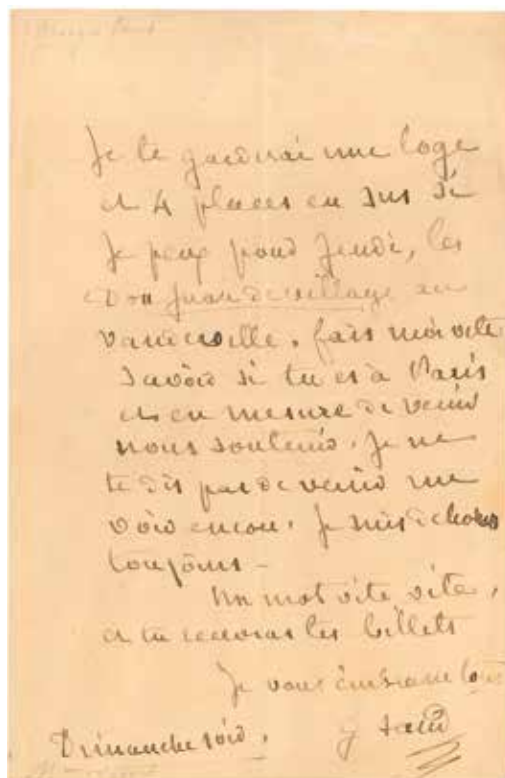 Je te garderai une loge
et 4 places en sus si
je peux pour Jeudi, les
Don Juan de village au
vaudeville. fais moi vite
savoir si tu es à Paris
et en mesure de venir
nous soutenir. Je ne
te dis pas de venir me
voir encore. Je suis dehors
toujours –
Un mot vite vite,
et tu recevras les billets
Je vous embrasse tous
G Sand
Dimanche soir.